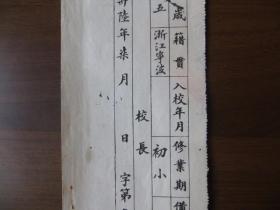 歲 籍貫 入校年月 修業期
五 浙江寧波 初小
校長
卅陸年柒月 日 字第